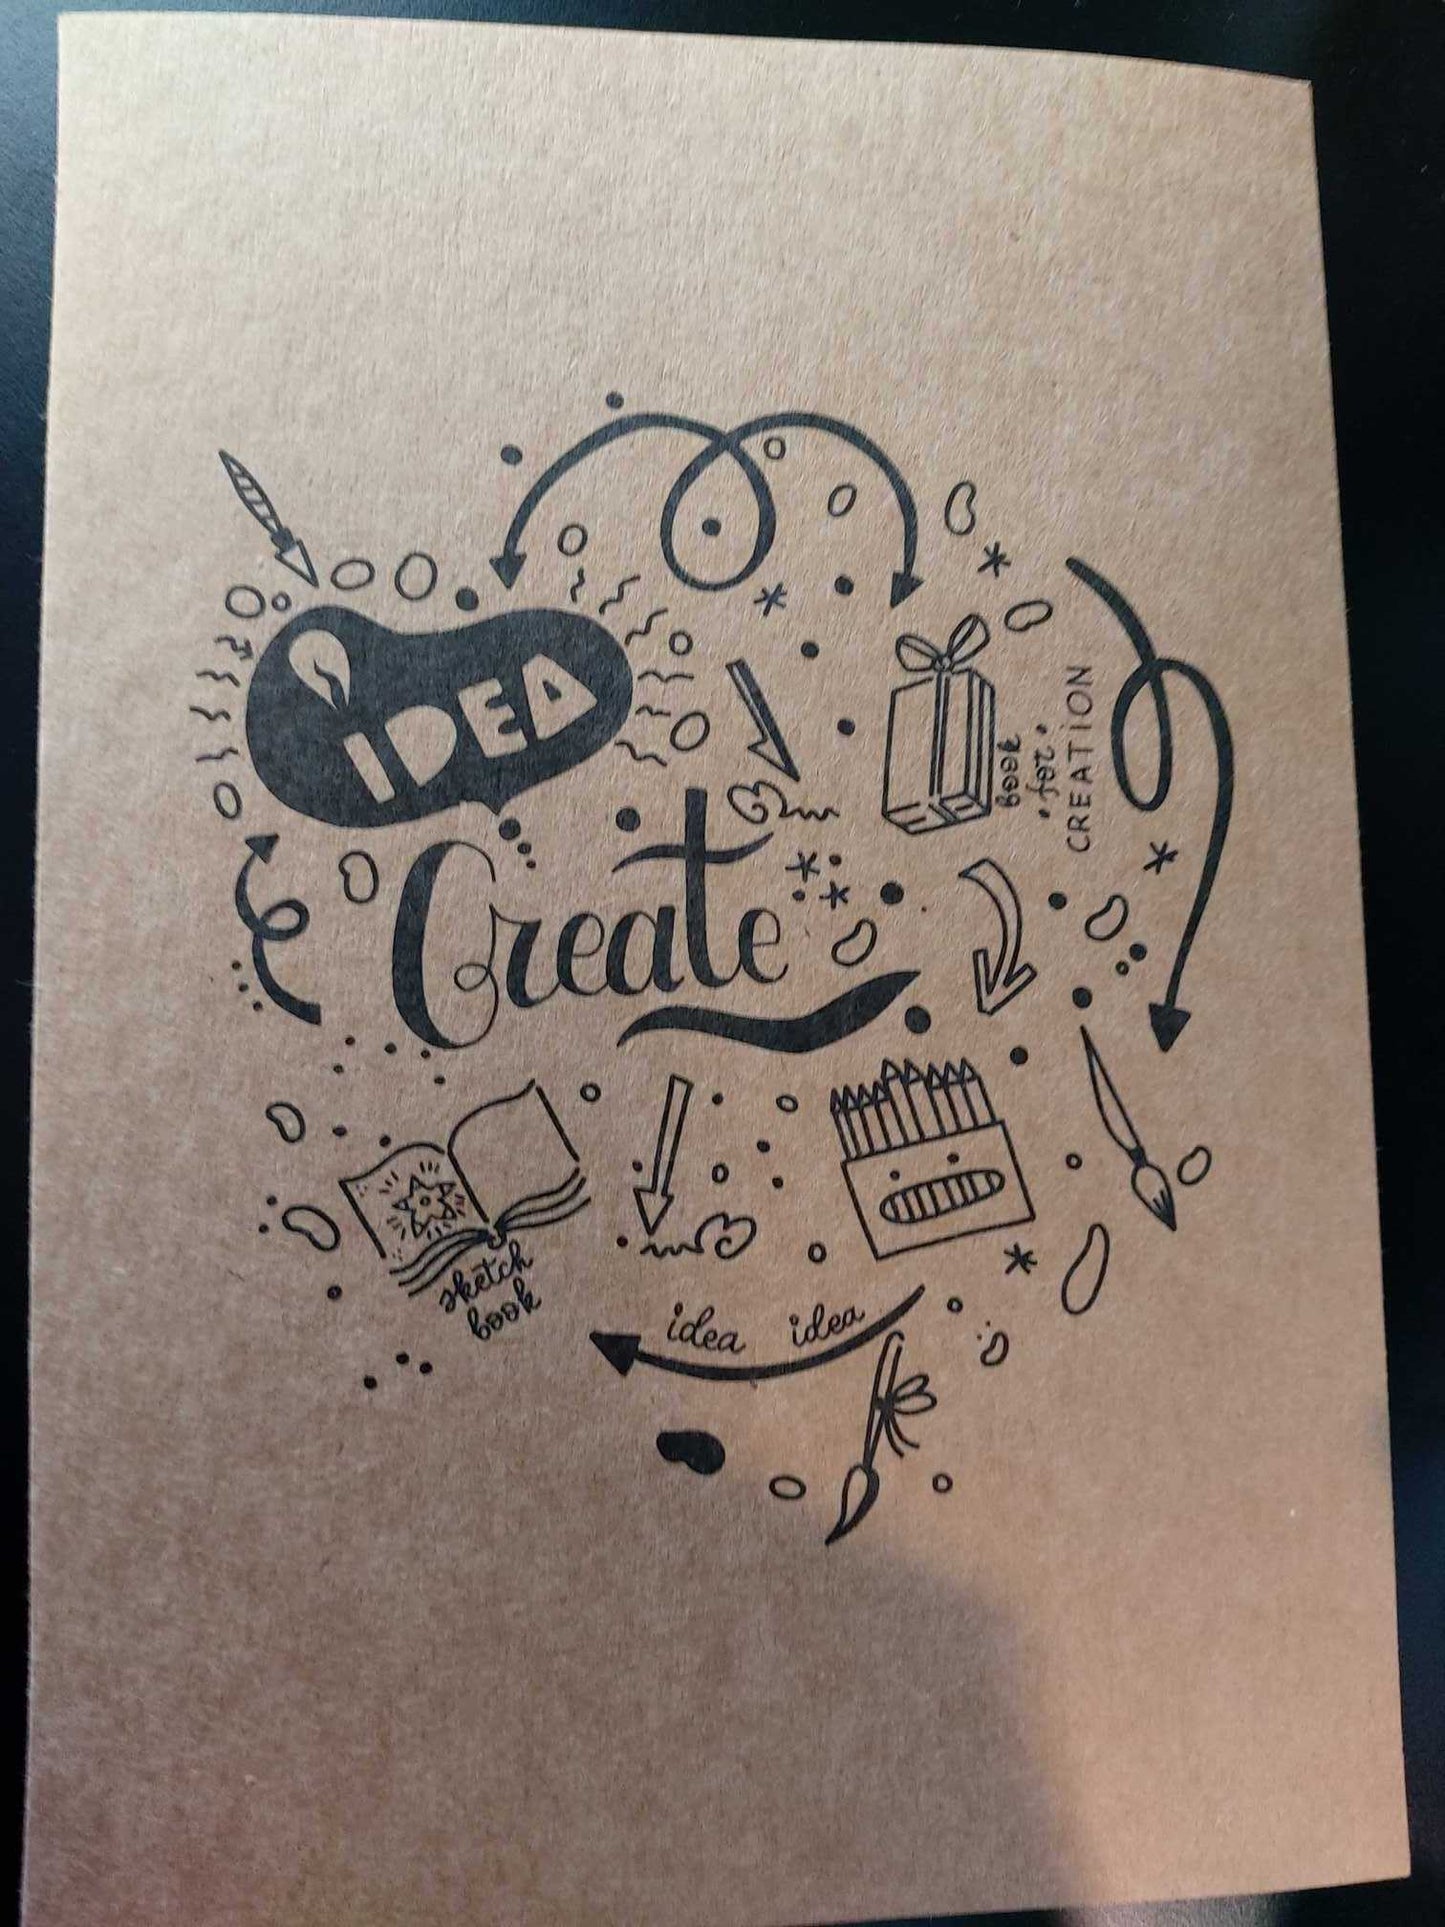 IDEA
book
for
CREATION
Create
sketch
book
idea idea